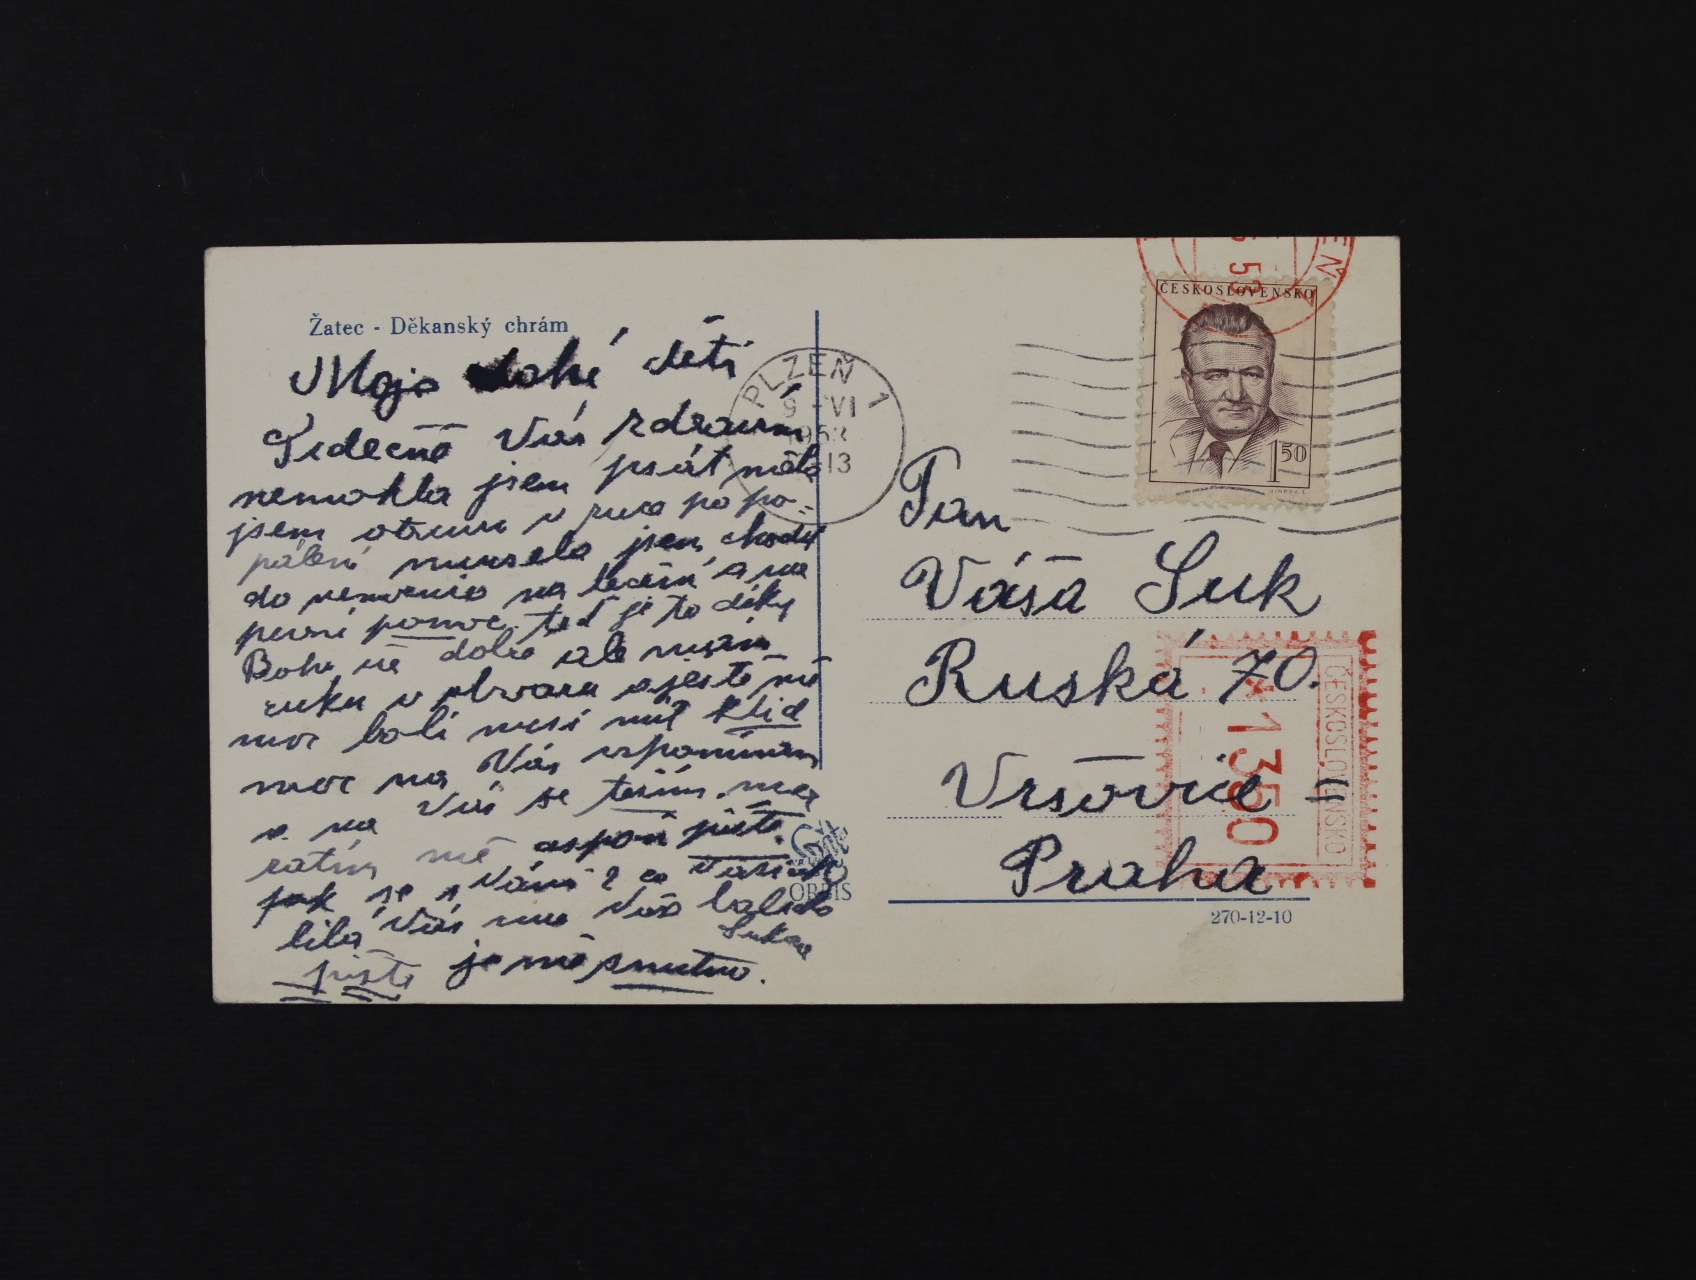 Žatec - Děkanský chrám
Moje drahé děti
Srdečně Vás zdravím
nemohla jsem psát měla
jsem otravu v ruce po po-
pálení musela jsem chodit
do nemocnice na léčení a na
první pomoc. teď je to díky
Bohu už dobré ale mám
ruku v obvazu a ještě mě
moc bolí musí mít klid
moc na Vás vzpomínám
a na Vás se těším.
mě aspoň pište.
jak se s Vámi? co
líbá Vás
pište je mě smutno.
PLZEŇ 1
9 -VI
1953
13
ČESKOSLOVENSKO
1 50
53
Pan
Váša Suk
Ruská 70.
Vršovice =
Praha
ČESKOSLOVENSKO
1350
ORBIS
270-12-10